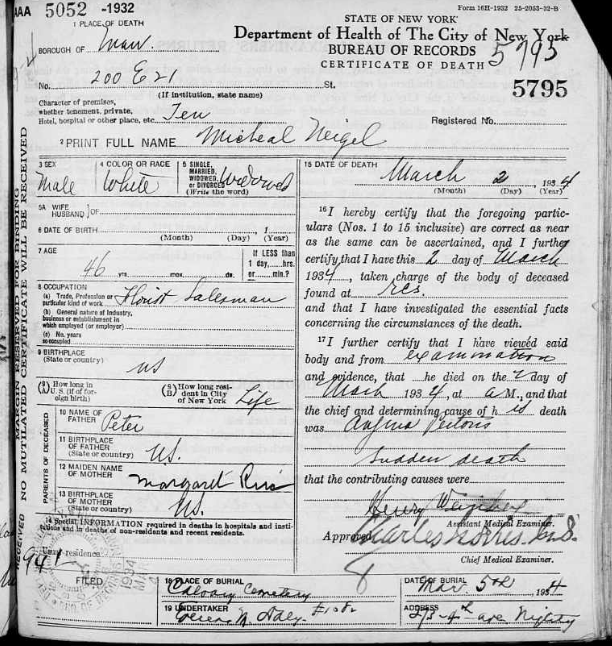 AAA 5052 -1932
Form 16H-1932 25-2053-32-B
1 PLACE OF DEATH
STATE OF NEW YORK
Department of Health of The City of New York
BUREAU OF RECORDS
CERTIFICATE OF DEATH
5795
5795
BOROUGH OF Man.
No. 200 E 21 St.
(If institution, state name)
Character of premises,
whether tenement, private,
Hotel, hospital or other place, etc. Ten
Registered No.
2 PRINT FULL NAME Micheal Neigel
3 SEX
Male
4 COLOR OR RACE
White
5 SINGLE,
MARRIED,
WIDOWED,
or DIVORCED
(Write the word)
Widowed
5A WIFE
HUSBAND } OF
6 DATE OF BIRTH
(Month) (Day) (Year)
7 AGE
46 yrs. mos. ds.
If LESS than
1 day, hrs.
or min.?
8 OCCUPATION
(a) Trade, Profession or
particular kind of work
Florist Salesman
(b) General nature of Industry,
business or establishment in
which employed (or employer)
(c) No. years
so occupied
9 BIRTHPLACE
(State or country)
US
How long in
U. S. (if of for-
eign birth)
How long resi-
dent in City
of New York
Life
PARENTS OF DECEASED
10 NAME OF
FATHER
Peter
11 BIRTHPLACE
OF FATHER
(State or country)
U.S.
12 MAIDEN NAME
OF MOTHER
Margaret
13 BIRTHPLACE
OF MOTHER
(State or country)
U.S.
14 Special INFORMATION required in deaths in hospitals and insti-
tutions and in deaths of non-residents and recent residents.
Usual residence
FILED
15 DATE OF DEATH
March 2, 1934
(Month) (Day) (Year)
16 I hereby certify that the foregoing particu-
lars (Nos. 1 to 15 inclusive) are correct as near
as the same can be ascertained, and I further
certify that I have this 2 day of March
1934, taken charge of the body of deceased
found at res.
and that I have investigated the essential facts
concerning the circumstances of the death.
17 I further certify that I have viewed said
body and from examination
and evidence, that he died on the 2 day of
March 1934, at a M., and that
the chief and determining cause of his death
was Angina Pectoris
Sudden death
that the contributing causes were
Henry
Assistant Medical Examiner.
Approved
Charles Norris M.D.
Chief Medical Examiner.
18 PLACE OF BURIAL
Calvary Cemetery
DATE OF BURIAL
Mar. 5th, 1934
19 UNDERTAKER
ADDRESS
NO MUTILATED CERTIFICATE WILL BE RECEIVED
MARGIN RESERVED FOR BINDING